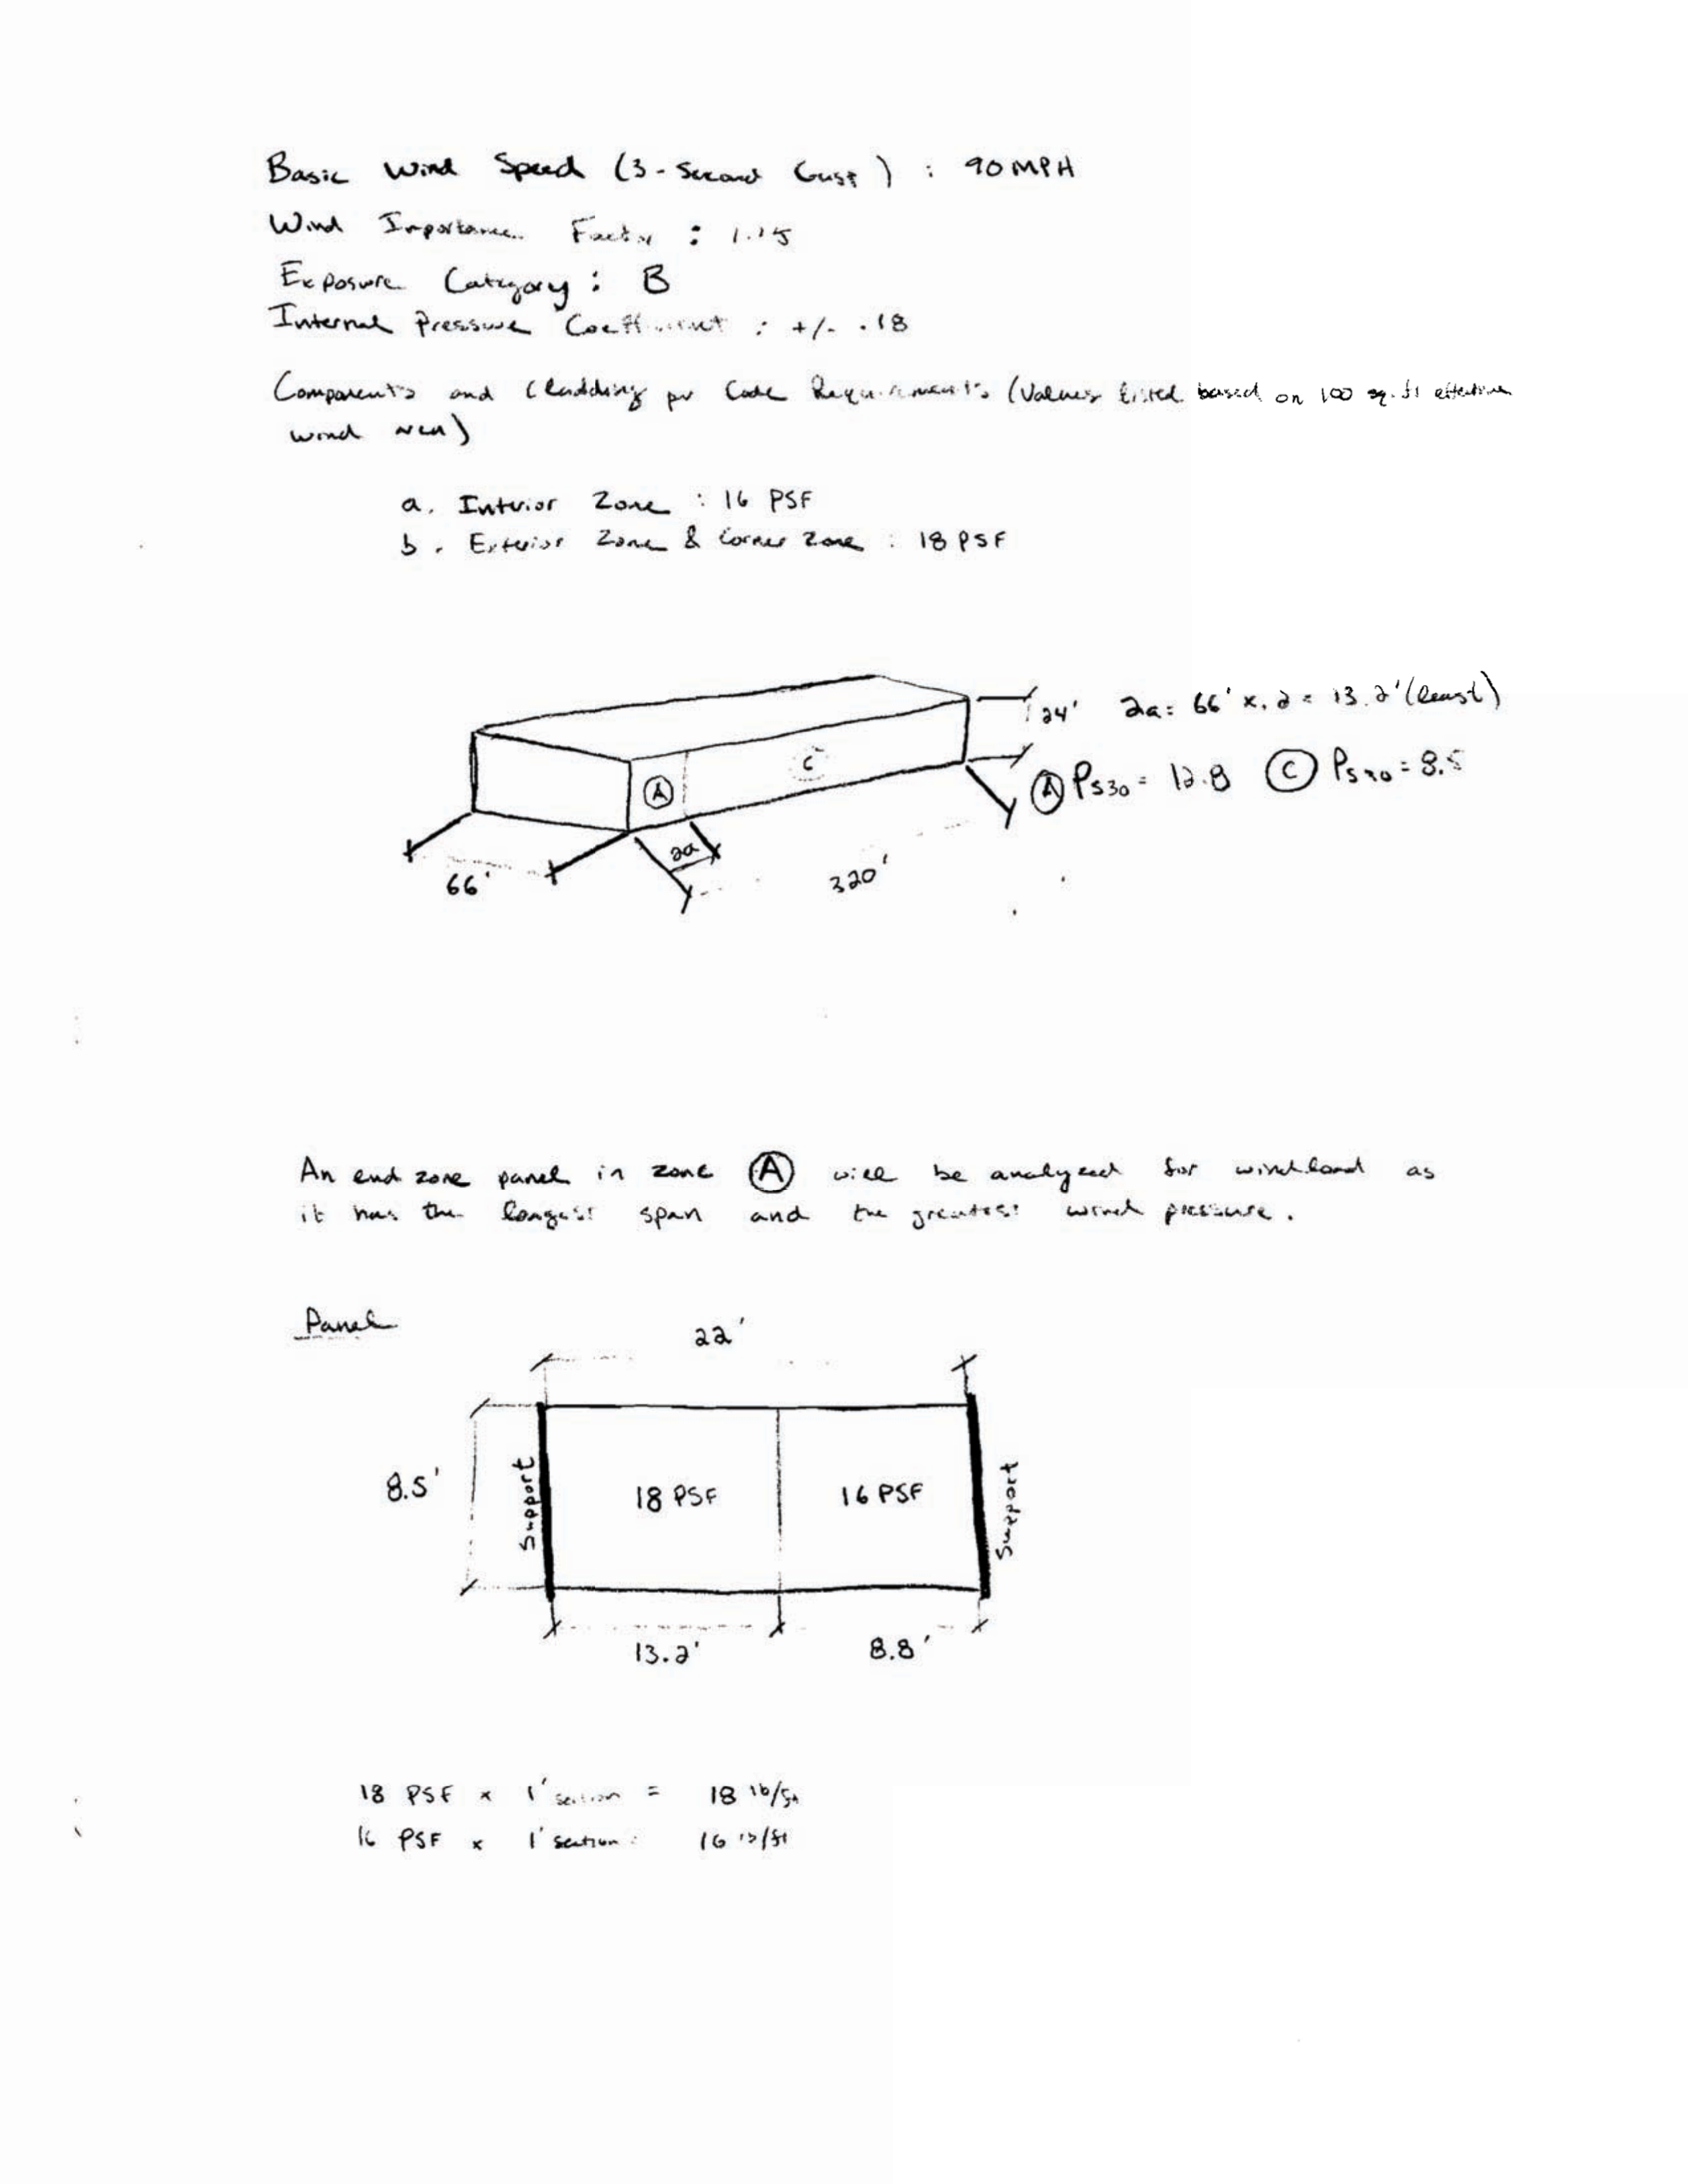 Basic Wind Speed (3-Second Gust) : 90 MPH
Wind Importance Factor : 1.15
Exposure Category : B
Internal Pressure Coefficient : +/- .18
Components and Cladding per Code Requirements (Values listed based on 100 sq. ft effective
wind area)
a. Interior Zone : 16 PSF
b. Exterior Zone & Corner Zone : 18 PSF
24' 2a = 66' x .2 = 13.2' (least)
A C
A Ps30 = 12.8 C Ps30 = 8.5
2a
66' 320'
An end zone panel in zone A will be analyzed for windload as
it has the longest span and the greatest wind pressure.
Panel
22'
8.5' Support 18 PSF 16 PSF Support
13.2' 8.8'
18 PSF x 1' section = 18 lb/ft
16 PSF x 1' section = 16 lb/ft